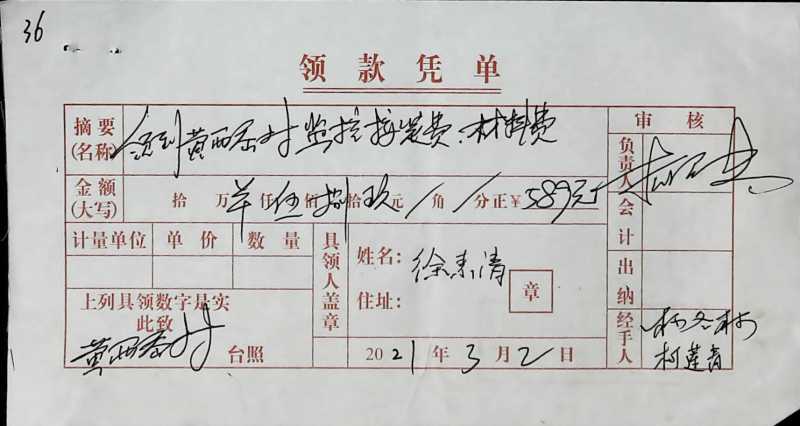 36
领款凭单
摘要(名称) 领到黄西村监控接装费、材料费
审核
负责人
金额(大写) 拾 万 仟 伍 佰 捌 拾 玖 元 / 角 / 分正 ¥ 589元
会计
计量单位 单价 数量
具领人盖章
姓名: 徐来清
住址:
章
出纳
上列具领数字是实
此致
台照
2021年3月2日
经手人
柯莲青